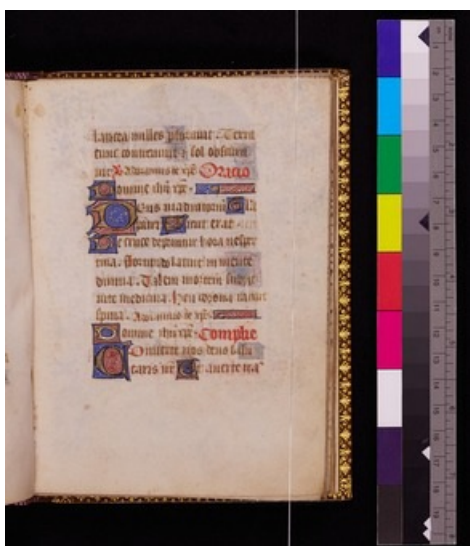 lancea miles perforavit. Terra
tunc contremuit & sol obscura
vit. Adoramus te xpe Oracio
Domine ihu xpe.
Deus in adiutorium
patri Sicut erat
De cruce deponitur hora vesper
tina. fortitudo latuit in mente
divina. Talem mortem subiit
vite medicina. heu corona
spina. Adoramus te xpe.
Domine ihu xpe. Comple
Converte nos deus salu
taris nr Et averte ira